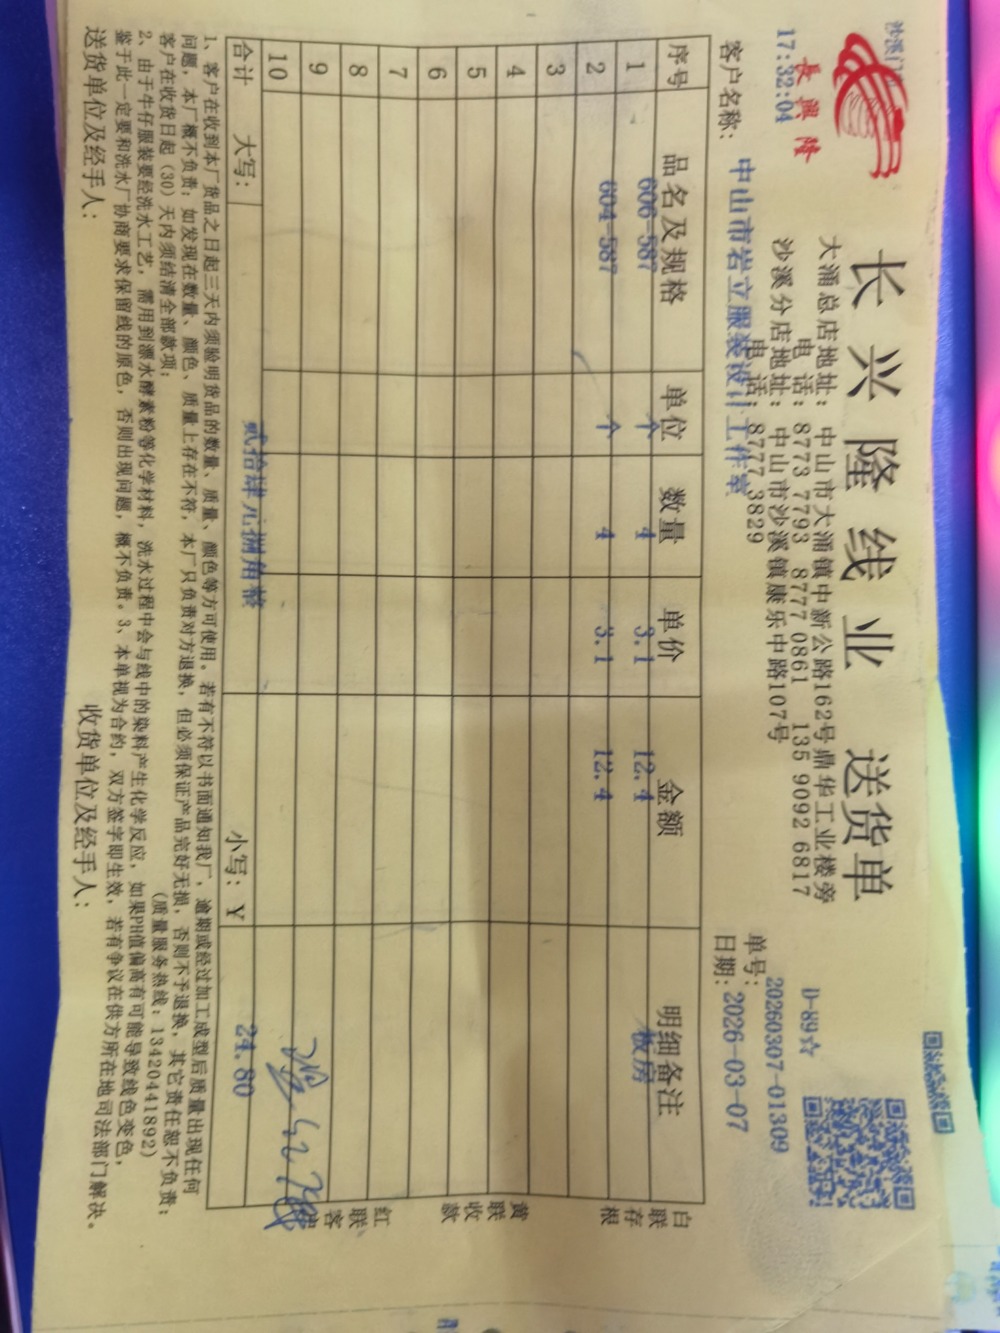 沙溪门
長興隆
17:32:04
长兴隆线业 送货单
大涌总店地址：中山市大涌镇中新公路162号鼎华工业楼旁
电 话：8773 7793 8777 0861 135 9092 6817
沙溪分店地址：中山市沙溪镇康乐中路107号
电 话：8777 3829
D-89☆
单号：20260307-01309
客户名称：中山市岩立服装设计工作室
日期：2026-03-07
序号 品名及规格 单位 数量 单价 金额 明细备注
1 606-587 个 4 3.1 12.4 板房
2 604-587 个 4 3.1 12.4
3
4
5
6
7
8
9
10
合计 大写：贰拾肆元捌角整 小写：¥ 24.80
白联存根
黄联收款
红联客户
1、客户在收到本厂货品之日起三天内须验明货品的数量、质量、颜色等方可使用。若有不符以书面通知我厂，逾期或经过加工成型后质量出现任何
问题，本厂概不负责；如发现在数量、颜色、质量上存在不符，本厂只负责对方退换，但必须保证产品完好无损，否则不予退换，其它责任恕不负责；
客户在收货日起（30）天内须结清全部款项；
（质量服务热线：13420441892）
2、由于牛仔服装要经洗水工艺，需用到漂水酵素粉等化学材料，洗水过程中会与线中的染料产生化学反应，如果PH值偏高有可能导致线色变色，
鉴于此一定要和洗水厂协商要求保留线的原色，否则出现问题，概不负责。3、本单视为合约，双方签字即生效，若有争议在供方所在地司法部门解决。
送货单位及经手人： 收货单位及经手人：